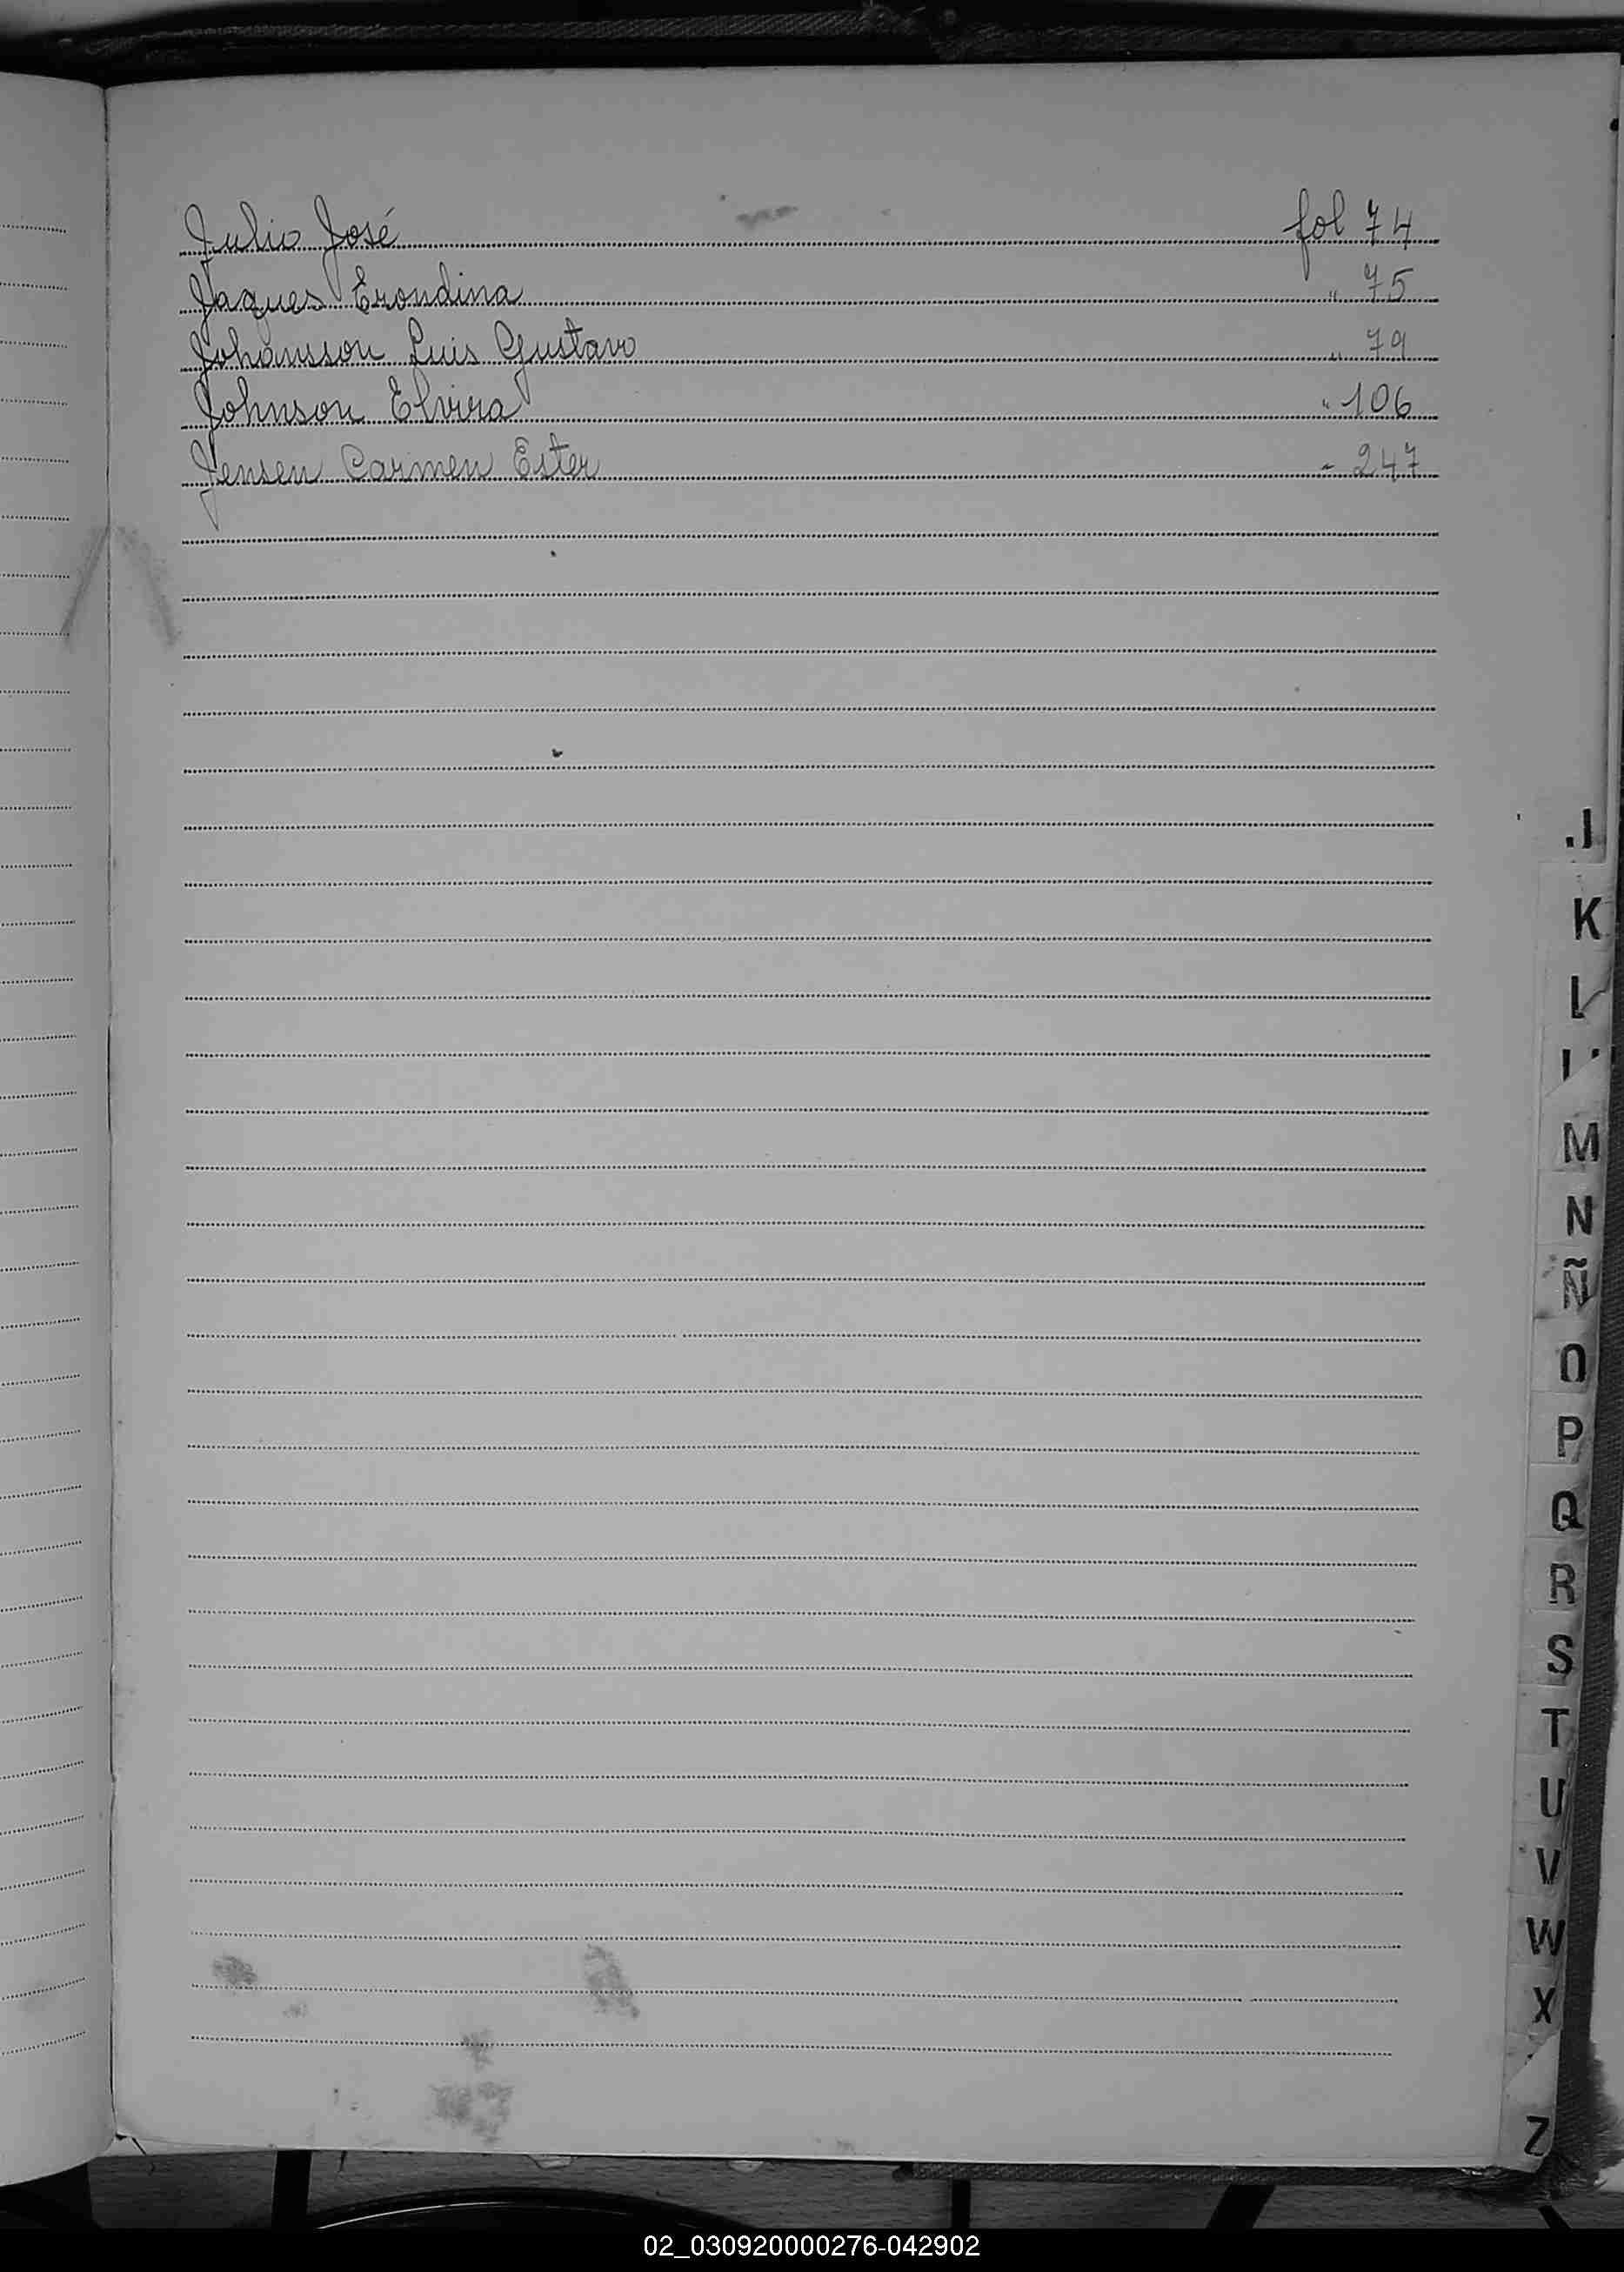 Julio José fol 74
Jaques Erondina " 75
Johansson Luis Gustavo " 79
Johnson Elvira " 106
Jensen Carmen Ester - 247
J
K
L
M
N
Ñ
O
P
Q
R
S
T
U
V
W
X
Z
02_030920000276-042902